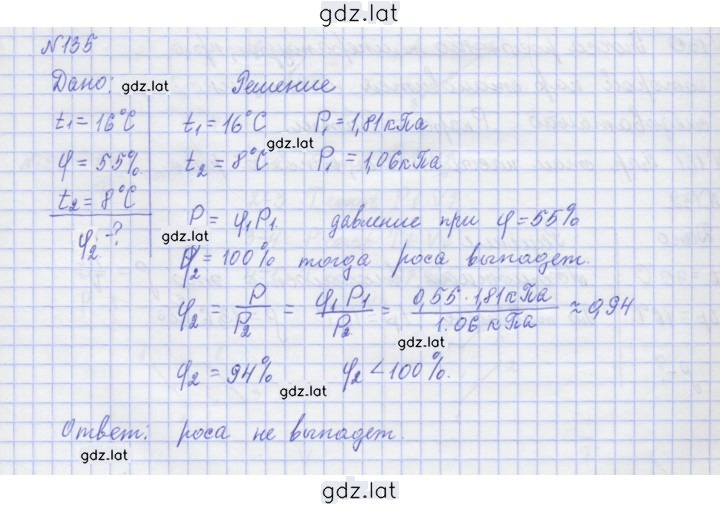 gdz.lat
№135
Дано: gdz.lat Решение
t₁ = 16°C t₁ = 16°C P₁ = 1,81 кПа
gdz.lat
φ = 55% t₂ = 8°C P₁ = 1,06 кПа
t₂ = 8°C
φ₂ - ? P = φ₁P₁. давление при φ = 55%
gdz.lat
φ₂ = 100% тогда роса выпадет.
φ₂ = P/P₂ = φ₁P₁/P₂ = 0,55·1,81 кПа/1.06 кПа ≈ 0,94
gdz.lat
φ₂ = 94% gdz.lat φ₂ < 100%.
Ответ: роса не выпадет.
gdz.lat
gdz.lat